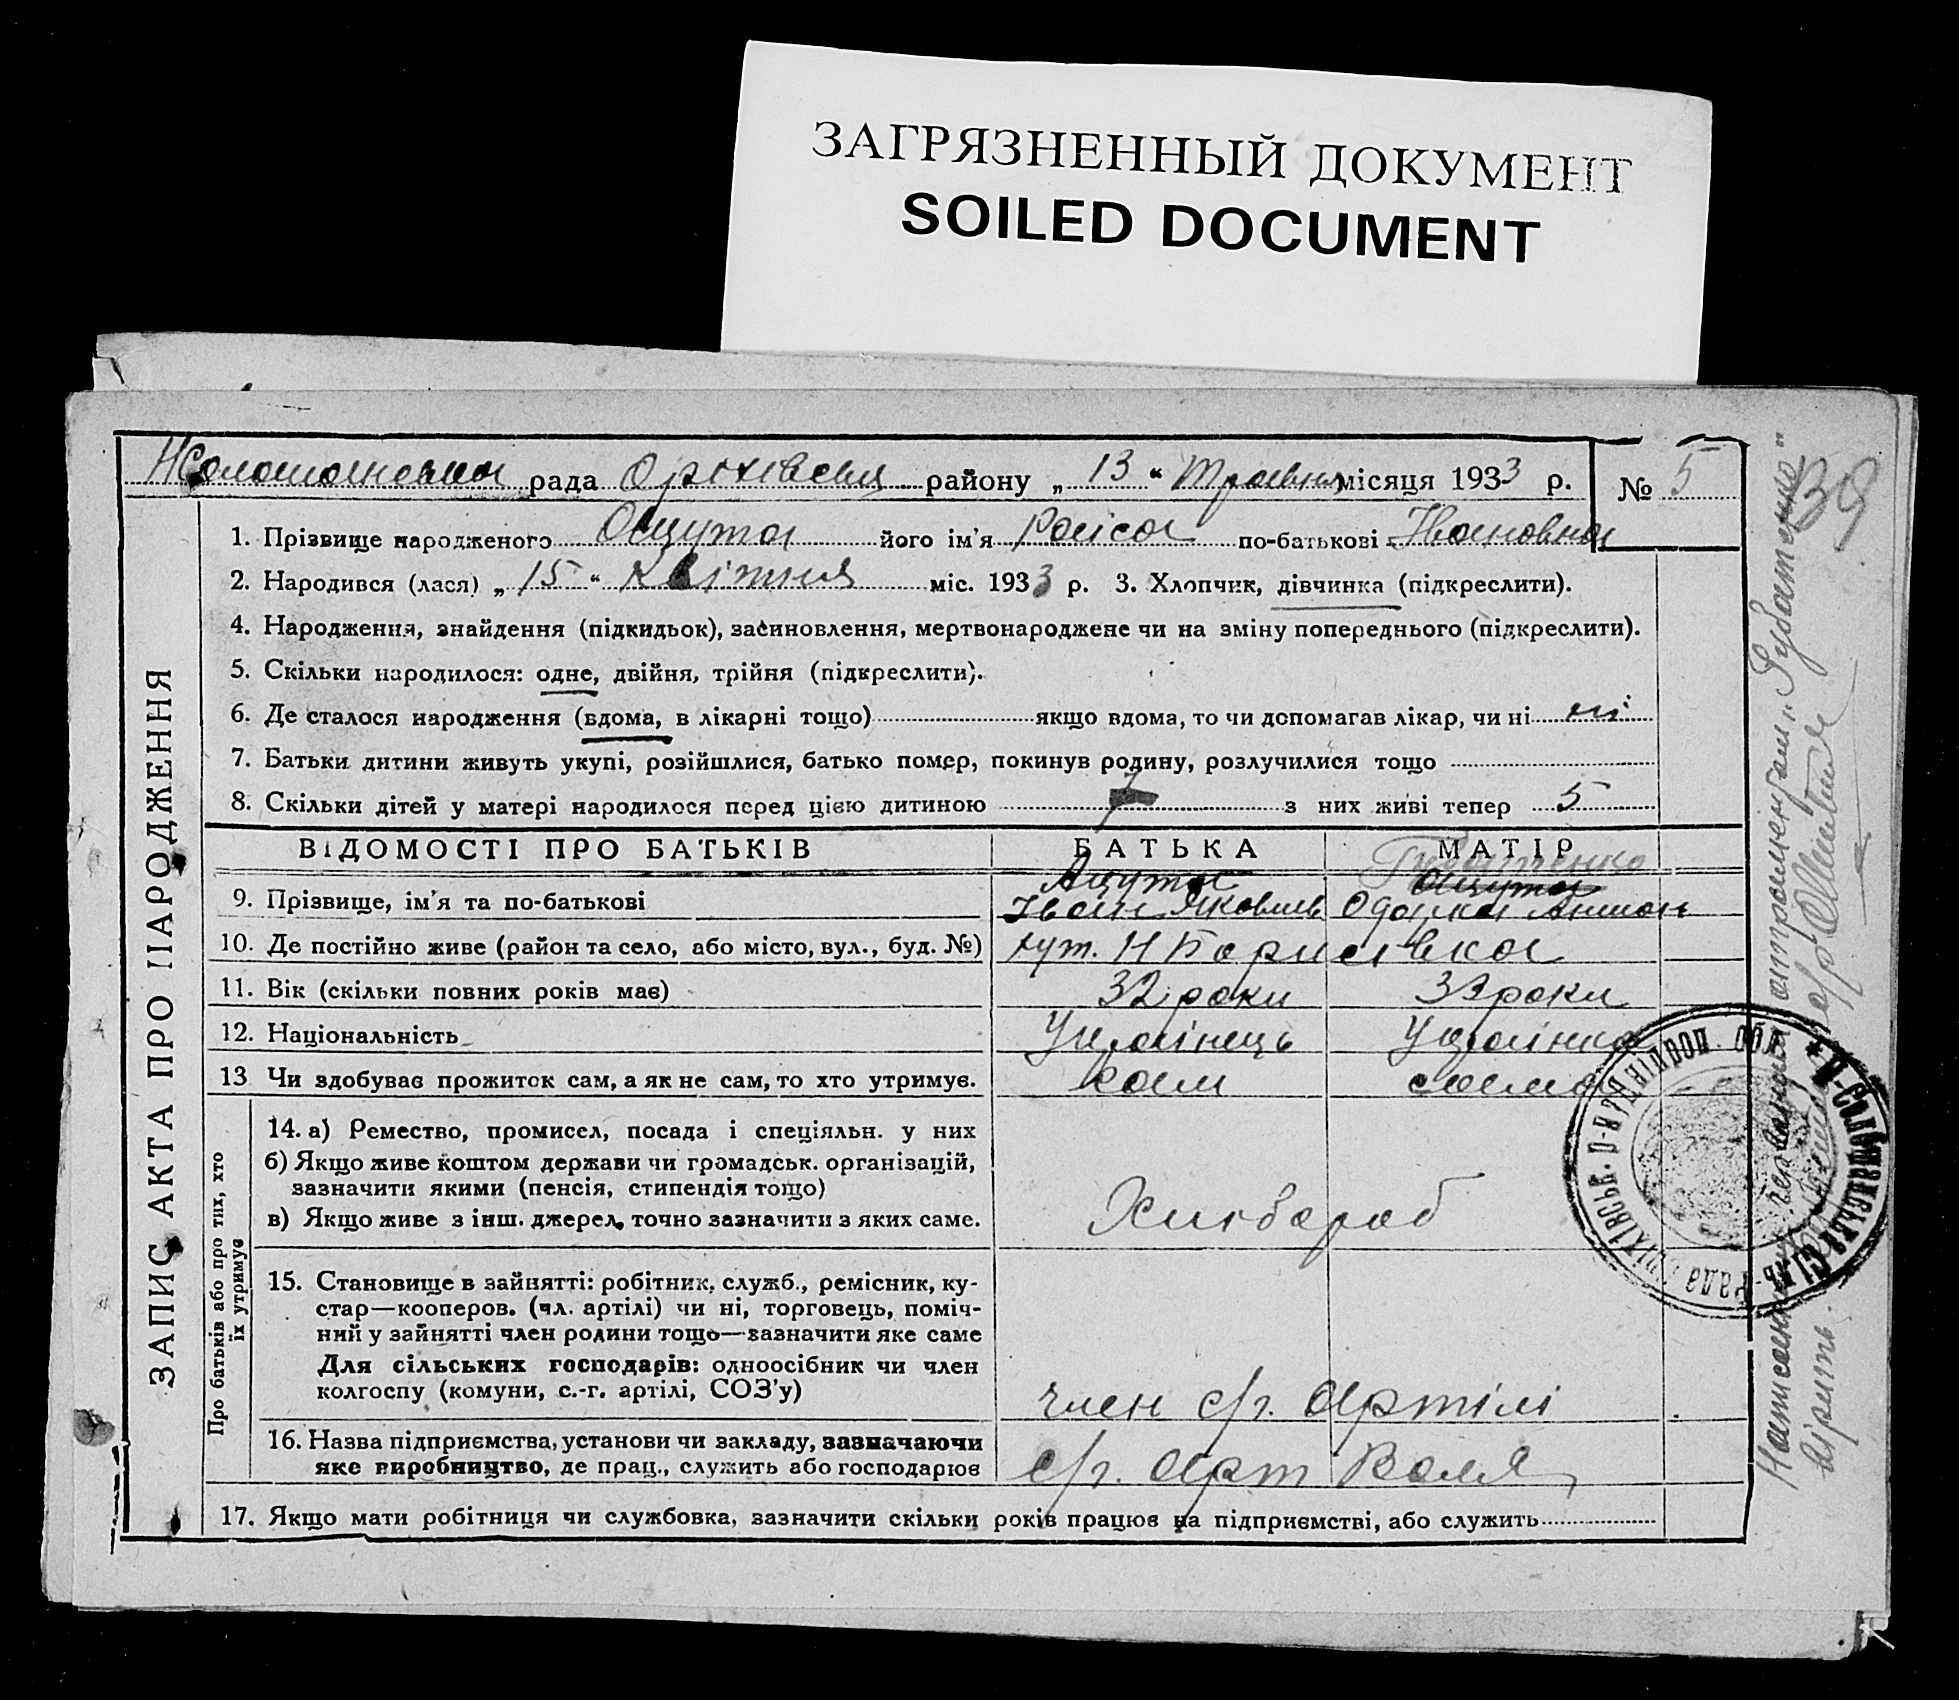 ЗАГРЯЗНЕННЫЙ ДОКУМЕНТ
SOILED DOCUMENT
рада Оріхівськ району „ 13 “ Травня місяця 1933 р. № 5
39
1. Прізвище народженого Ощута його ім'я Раїса по-батькові Івановна
2. Народився (лася) „ 15 “ Квітня міс. 1933 р. 3. Хлопчик, дівчинка (підкреслити).
4. Народження, знайдення (підкидьок), засиновлення, мертвонароджене чи на зміну попереднього (підкреслити).
5. Скільки народилося: одне, двійня, трійня (підкреслити).
6. Де сталося народження (вдома, в лікарні тощо) якщо вдома, то чи допомагав лікар, чи ні ні
7. Батьки дитини живуть укупі, розійшлися, батько помер, покинув родину, розлучилися тощо
8. Скільки дітей у матері народилося перед цією дитиною 7 з них живі тепер 5
ЗАПИС АКТА ПРО НАРОДЖЕННЯ
ВІДОМОСТІ ПРО БАТЬКІВ БАТЬКА МАТІР
Губатенко
Ащута Ощута
9. Прізвище, ім'я та по-батькові Іван Яковлев Одарка Антон
10. Де постійно живе (район та село, або місто, вул., буд. №) хут. Н Борисівка
11. Вік (скільки повних років має) 32 роки 32 роки
12. Національність Українець Українка
13 Чи здобуває прожиток сам, а як не сам, то хто утримує. сам сама
Про батьків або про тих, хто
їх утримує
14. а) Ремество, промисел, посада і спеціяльн. у них
б) Якщо живе коштом держави чи громадськ. організацій,
зазначити якими (пенсія, стипендія тощо)
в) Якщо живе з інш. джерел, точно зазначити з яких саме.
Хлібороб
15. Становище в зайнятті: робітник, служб., ремісник, ку-
стар—кооперов. (чл. артілі) чи ні, торговець, поміч-
ний у зайнятті член родини тощо—зазначити яке саме
Для сільських господарів: одноосібник чи член
колгоспу (комуни, с.-г. артілі, СОЗ'у)
член с/г. Артілі
16. Назва підприємства, установи чи закладу, зазначаючи
яке виробництво, де прац., служить або господарює
с/г. Арт Воля
17. Якщо мати робітниця чи службовка, зазначити скільки років працює на підприємстві, або служить
Написанному „Губатенко“
вірить.